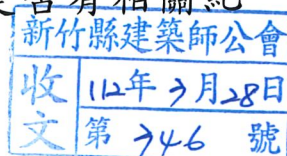 是否有相關紀
新竹縣建築師公會
收文
112年3月28日
第346號